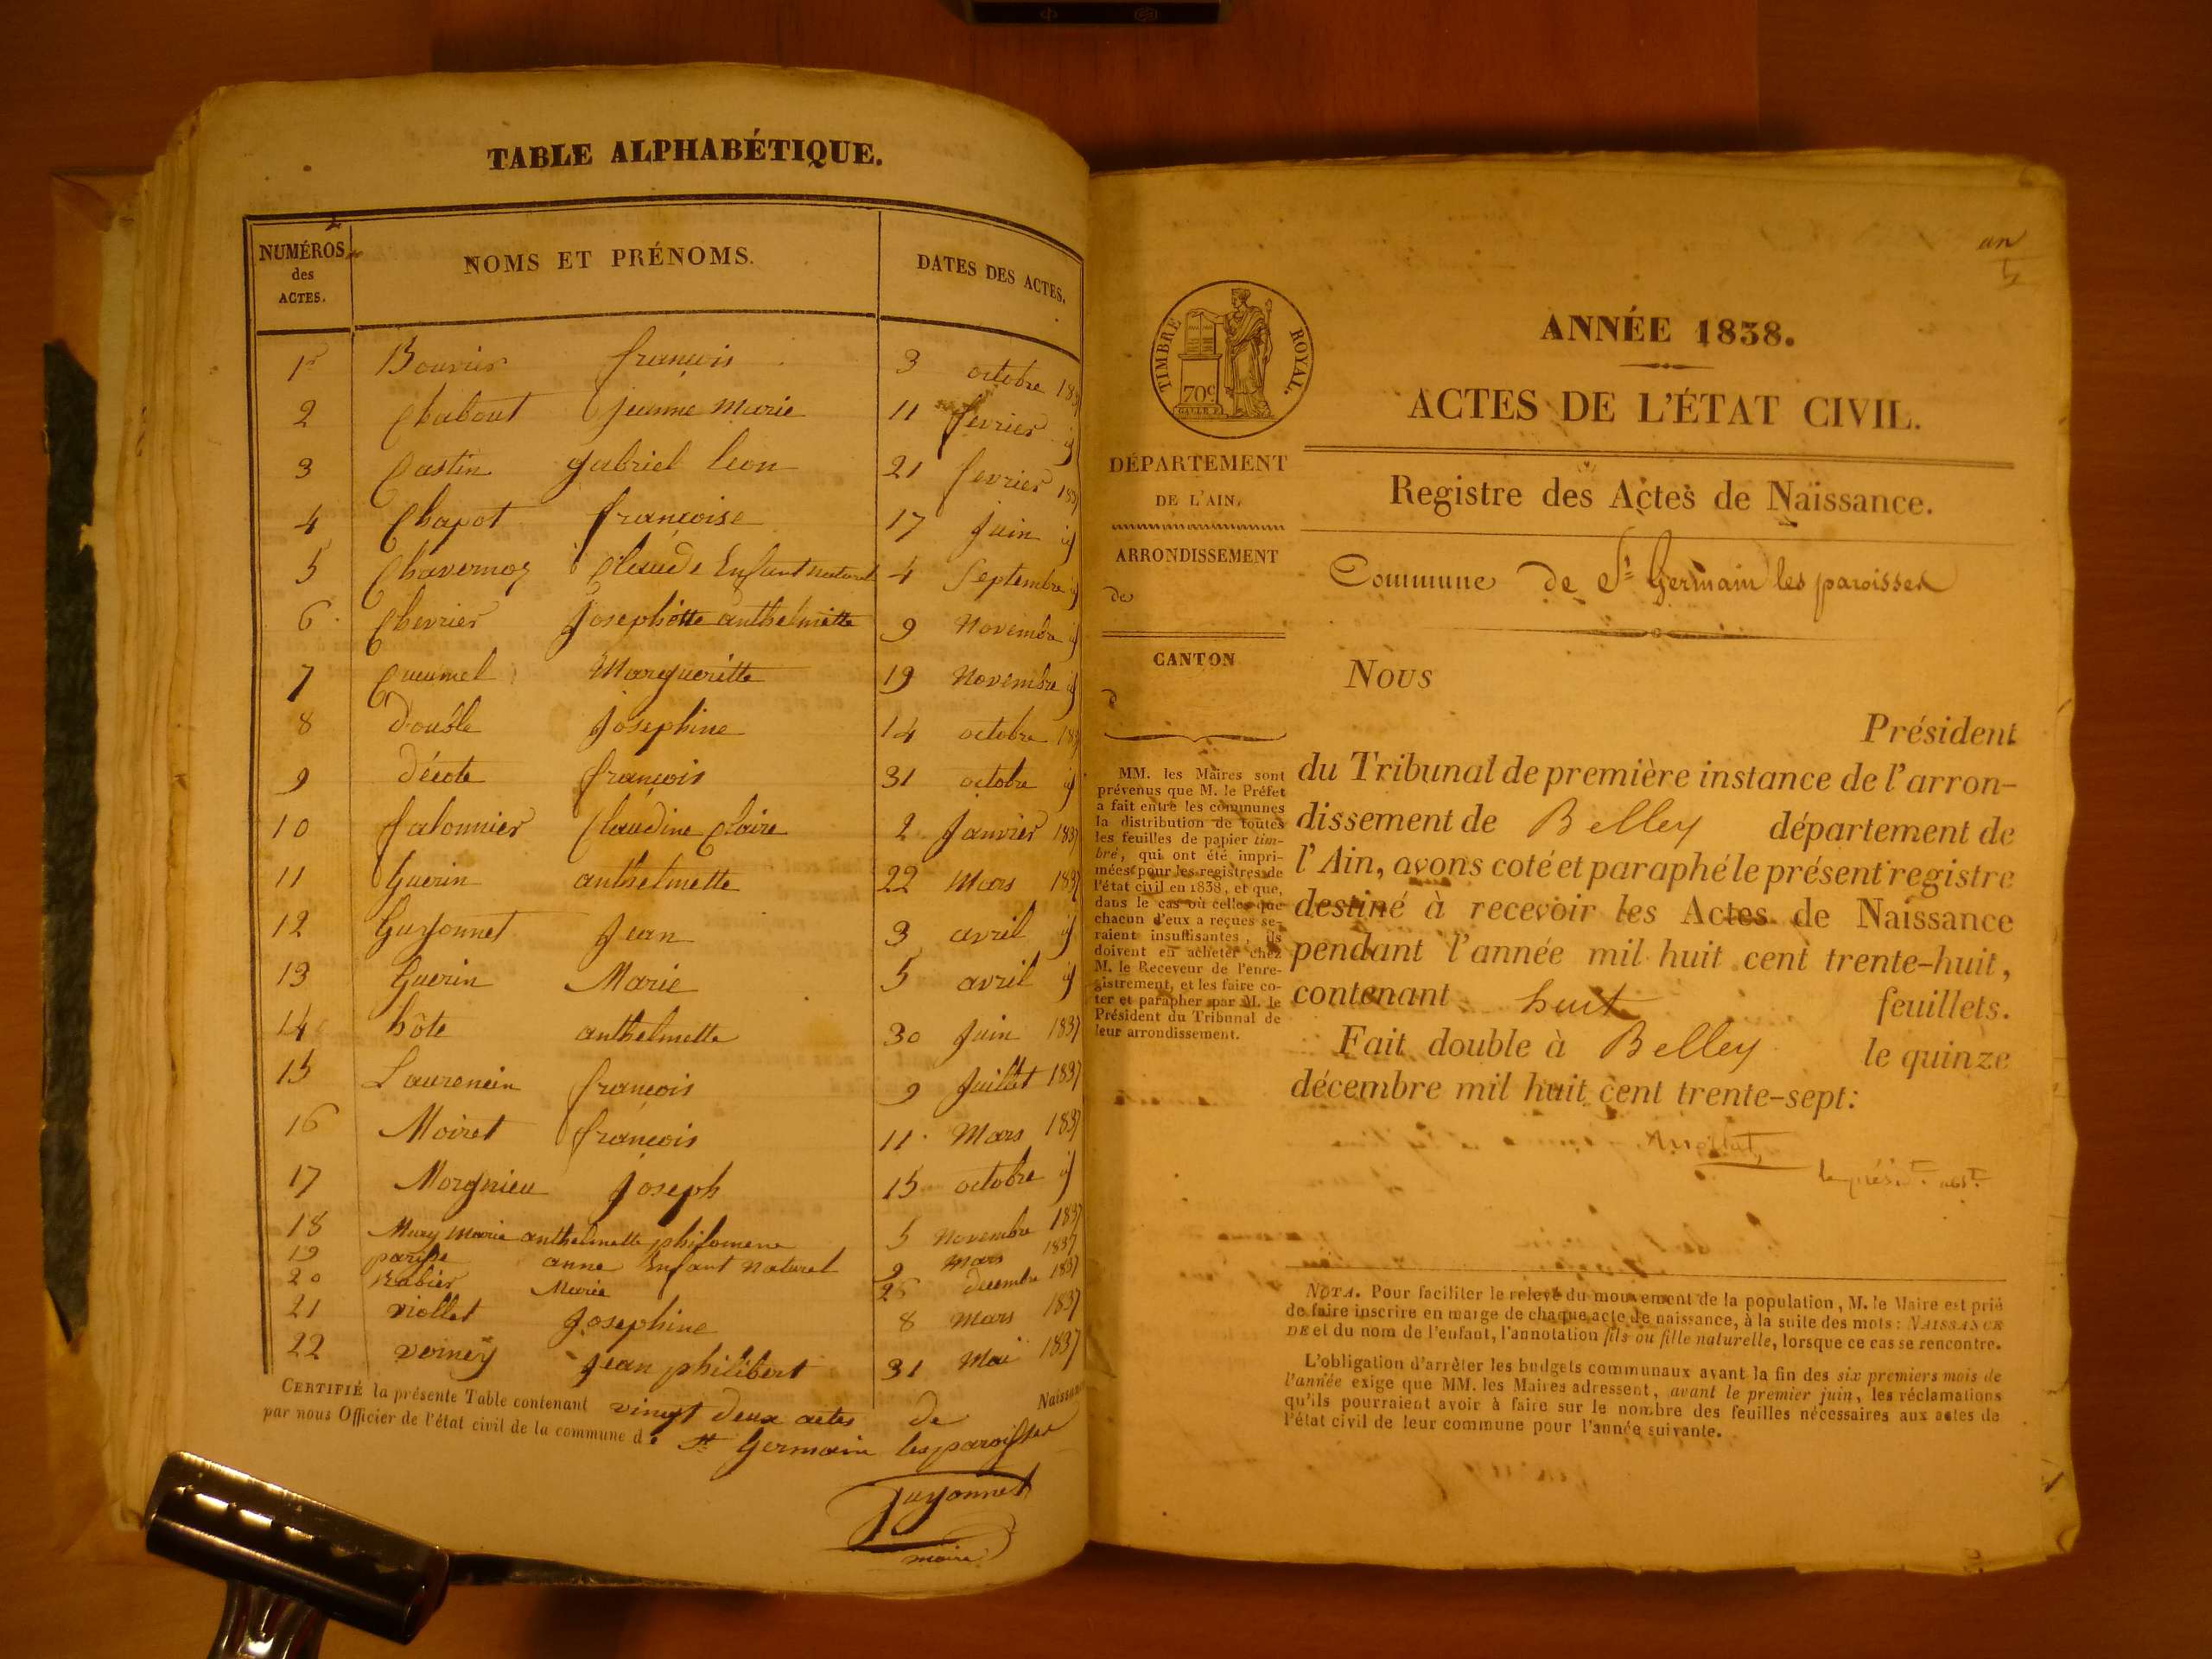 TABLE ALPHABÉTIQUE.
NUMÉROS des ACTES. NOMS ET PRÉNOMS. DATES DES ACTES.
1r Bouvier françois 3 octobre 1837
2 Chabout Jeanne Marie 11 fevrier id
3 Castin gabriel leon 21 fevrier 1837
4 Chapot françoise 17 Juin id
5 Chavernoz Claude Enfant naturel 4 Septembre id
6 Chevrier Josephotte anthelmette 9 Novembre id
7 Cucumel Margueritte 19 Novembre id
8 double Josephine 14 octobre 1837
9 décote françois 31 octobre id
10 falonnier Claudine Claire 2 Janvier 1837
11 Guerin anthelmette 22 Mars 1837
12 Guyonnet Jean 3 avril id
13 Guerin Marie 5 avril id
14 hôte anthelmette 30 Juin 1837
15 Laurencin françois 9 Juillet 1837
16 Moiret françois 11 Mars 1837
17 Morgnieu Joseph 15 octobre id
18 Mury Marie anthelmette philomene 5 Novembre 1837
19 anne Enfant Naturel 9 Mars 1837
20 Rabier Marie 26 decembre 1837
21 viollet Josephine 8 Mars 1837
22 voiney Jean philibert 31 Mai 1837
CERTIFIÉ la présente Table contenant vingt deux actes de Naissan
par nous Officier de l'état civil de la commune de St Germain les paroisses
Guyonnet
maire
un
TIMBRE ROYAL.
70c
ANNÉE 1838.
ACTES DE L'ÉTAT CIVIL.
Registre des Actes de Naissance.
Commune de St Germain les paroisses
DÉPARTEMENT
DE L'AIN.
ARRONDISSEMENT
de
CANTON
d
MM. les Maires sont
prévenus que M. le Préfet
a fait entre les communes
la distribution de toutes
les feuilles de papier tim-
bré, qui ont été impri-
mées pour les registres de
l'état civil en 1838, et que,
dans le cas où celles que
chacun d'eux a reçues se-
raient insuffisantes, ils
doivent en acheter chez
M. le Receveur de l'enre-
gistrement, et les faire co-
ter et parapher par M. le
Président du Tribunal de
leur arrondissement.
Nous
Président
du Tribunal de première instance de l'arron-
dissement de Belley département de
l'Ain, avons coté et paraphé le présent registre
destiné à recevoir les Actes de Naissance
pendant l'année mil huit cent trente-huit,
contenant huit feuillets.
Fait double à Belley le quinze
décembre mil huit cent trente-sept:
NOTA. Pour faciliter le relevé du mouvement de la population, M. le Maire est prié
de faire inscrire en marge de chaque acte de naissance, à la suite des mots: NAISSANCE
DE et du nom de l'enfant, l'annotation fils ou fille naturelle, lorsque ce cas se rencontre.
L'obligation d'arrêter les budgets communaux avant la fin des six premiers mois de
l'année exige que MM. les Maires adressent, avant le premier juin, les réclamations
qu'ils pourraient avoir à faire sur le nombre des feuilles nécessaires aux actes de
l'état civil de leur commune pour l'année suivante.